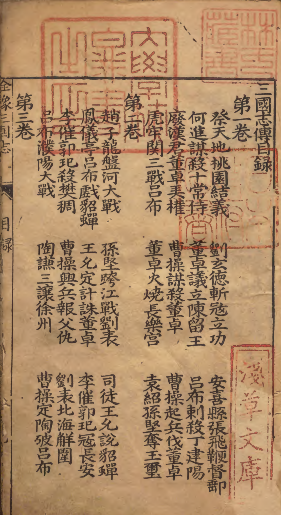 林氏藏書
三國志傳目録
第一卷
祭天地桃園結義 劉玄德斬寇立功 安喜縣張飛鞭督郵
何進謀殺十常侍 董卓議立陳留王 呂布刺殺丁建陽
廢漢君董卓弄權 曹操謀殺董卓 曹操起兵伐董卓
虎牢関三戰呂布 董卓火燒長樂宮 袁紹孫堅奪玉璽
第二卷
趙子龍盤河大戰 孫堅跨江戰劉表 司徒王允說貂蟬
鳳儀亭呂布戲貂蟬 王允定計誅董卓 李傕郭汜寇長安
李傕郭汜殺樊稠 曹操興兵報父仇 劉表北海解圍
呂布濮陽大戰 陶謙三讓徐州 曹操定陶破呂布
第三卷
全像三国志
目録
淺草文庫